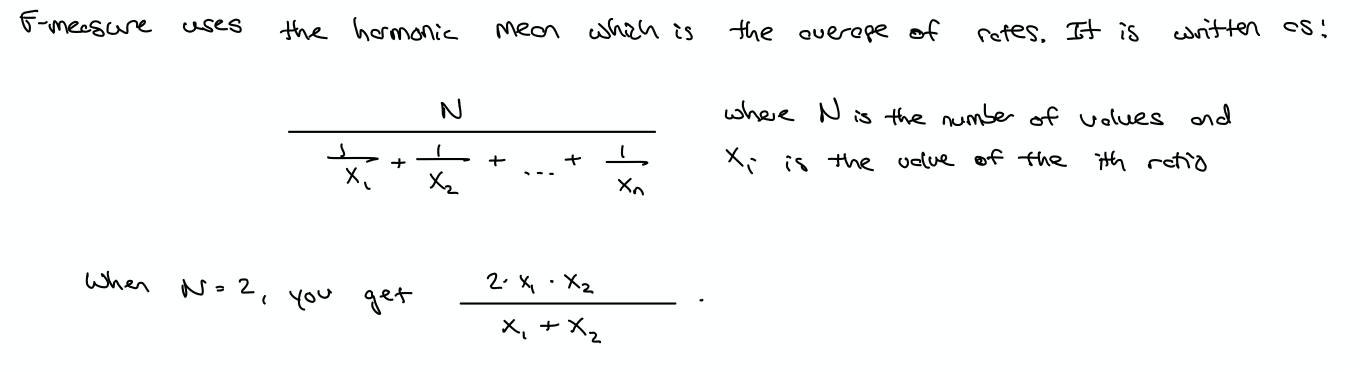 F-measure uses the harmonic mean which is the average of rates. It is written as:
N
1/x₁ + 1/x₂ + ... + 1/xₙ
where N is the number of values and
xᵢ is the value of the ith ratio
When N = 2, you get
2 · x₁ · x₂
x₁ + x₂ .